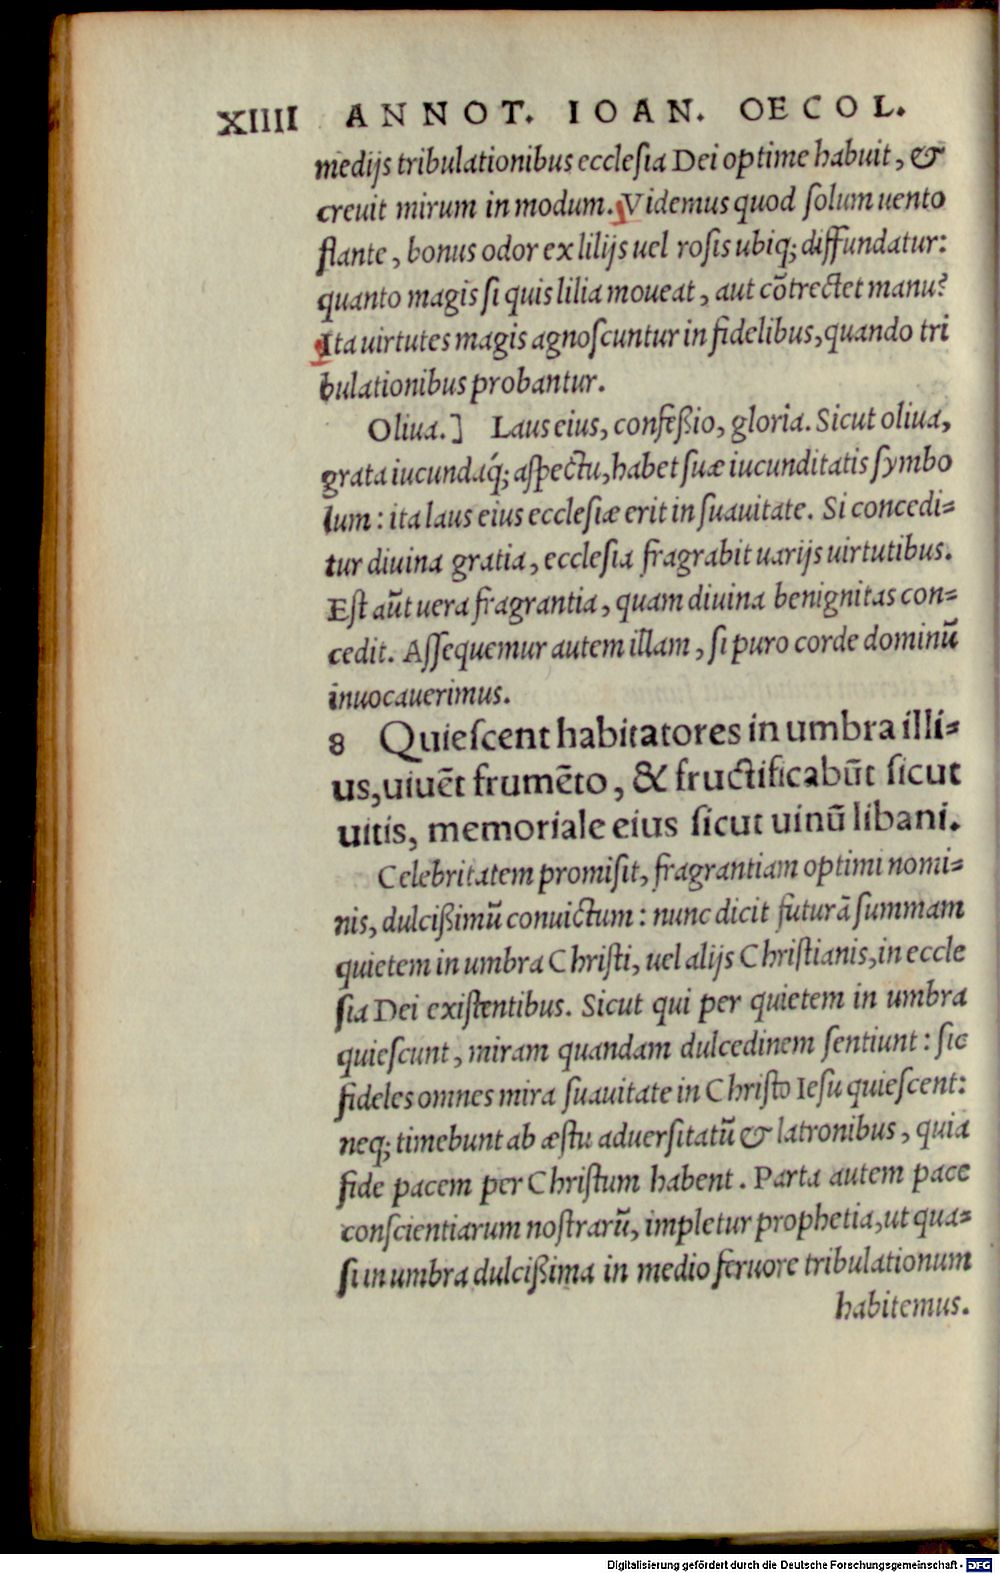 XIIII ANNOT. IOAN. OECOL.
medijs tribulationibus ecclesia Dei optime habuit, &
creuit mirum in modum. Videmus quod solum uento
flante, bonus odor ex lilijs uel rosis ubiq; diffundatur:
quanto magis si quis lilia moueat, aut cōtrectet manu?
Ita uirtutes magis agnoscuntur in fidelibus, quando tri
bulationibus probantur.
Oliua.] Laus eius, confeßio, gloria. Sicut oliua,
grata iucundaq́; aspectu, habet suæ iucunditatis symbo
lum: ita laus eius ecclesiæ erit in suauitate. Si concedi=
tur diuina gratia, ecclesia fragrabit uarijs uirtutibus.
Est aūt uera fragrantia, quam diuina benignitas con=
cedit. Assequemur autem illam, si puro corde dominū
inuocauerimus.
8 Quiescent habitatores in umbra illi=
us, uiuēt frumēto, & fructificabūt sicut
uitis, memoriale eius sicut uinū libani.
Celebritatem promisit, fragrantiam optimi nomi=
nis, dulcißimū conuictum: nunc dicit futurā summam
quietem in umbra Christi, uel alijs Christianis, in eccle
sia Dei existentibus. Sicut qui per quietem in umbra
quiescunt, miram quandam dulcedinem sentiunt: sic
fideles omnes mira suauitate in Christo Iesu quiescent:
neq; timebunt ab æstu aduersitatū & latronibus, quia
fide pacem per Christum habent. Parta autem pace
conscientiarum nostrarū, impletur prophetia, ut qua=
si in umbra dulcißima in medio feruore tribulationum
habitemus.
Digitalisierung gefördert durch die Deutsche Forschungsgemeinschaft - DFG